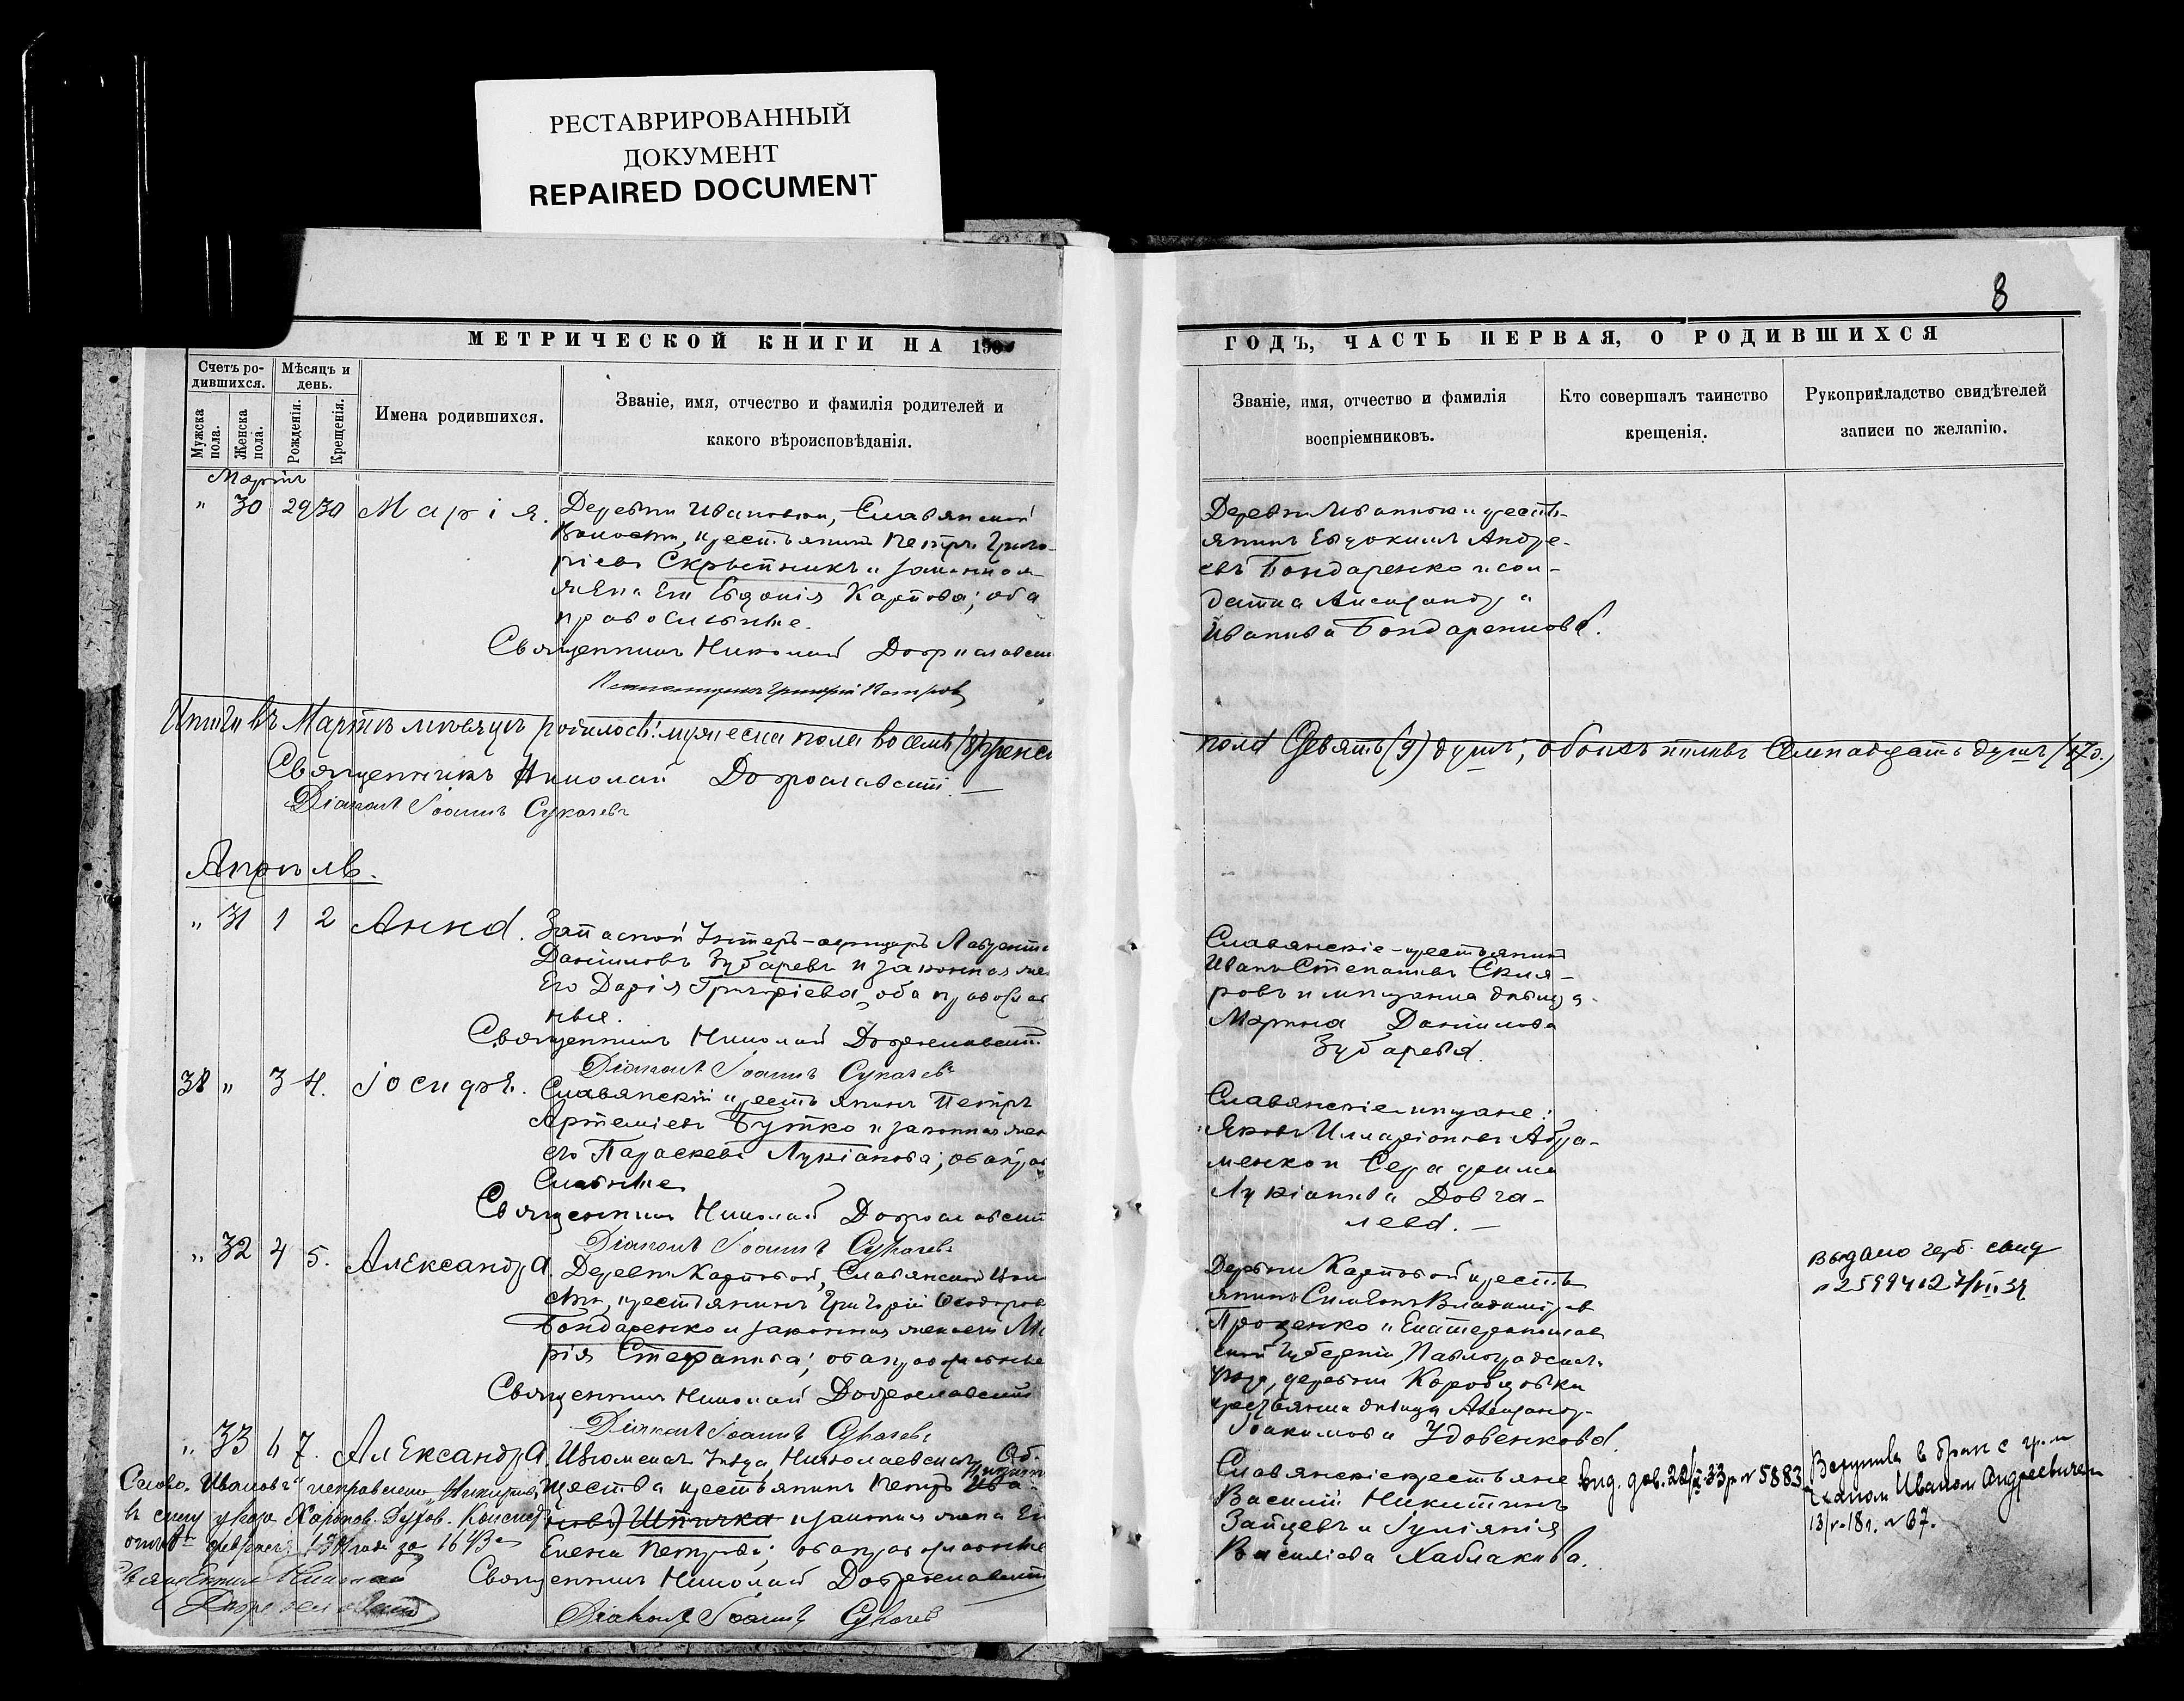 РЕСТАВРИРОВАННЫЙ
ДОКУМЕНТ
REPAIRED DOCUMENT
МЕТРИЧЕСКОЙ КНИГИ НА 190
Счетъ ро-
дившихся.
Мѣсяцъ и
день.
Мужска
пола.
Женска
пола.
Рожденія.
Крещенія.
Имена родившихся.
Званіе, имя, отчество и фамилія родителей и
какого вѣроисповѣданія.
Мартъ
" 30 29 30 Марія.
Деревни Ивановки, Славянской
Волости, крестьянинъ Петръ Григо-
ріевъ Скрыпникъ и законная
жена его Евдокія Карпова; оба
православные.
Священникъ Николай
Псаломщикъ Григорій Петровъ
Итого въ Мартѣ мѣсяцѣ родилось: мужеска пола восемь (8) женск
Священникъ Николай Доброславскій
Діаконъ Іоаннъ Сукачевъ
Апрѣль.
" 31 1 2 Анна.
Запасной Унтеръ-офицеръ Лаврентій
Даніиловъ Зубаревъ и законная жен
его Дарія Григоріева, оба православ
ные.
Священникъ Николай Доброславскій
Діаконъ Іоаннъ Сукачевъ
38 " 3 4. Іосифъ.
Славянскій крестьянинъ Петръ
Артеміевъ Бутко и законная жен
его Параскева Лукіанова; оба пра
славные
Священникъ Николай Доброславскій
Діаконъ Іоаннъ Сукачевъ
" 32 4 5. Александра.
Деревни Карповой, Славянской вол
сти, крестьянинъ Григорій Феодоров
Бондаренко и законная жена его Ма
рія Стефанова; оба православные
Священникъ Николай Доброславскій
Діаконъ Іоаннъ Сукачевъ
" 33 7. Александра.
Изюмскаго Уѣзда, Николаевскаго Об-
щества крестьянинъ Петръ Ива-
новъ) и законная жена его
Елена Петрова; оба православные
Священникъ Николай Доброславскій
Діаконъ Іоаннъ Сукачевъ
Слово "Ивановъ" исправлено
въ силу указа Харьков. Духов. Консист
Священникъ Николай
Доброславскій
8
ГОДЪ, ЧАСТЬ ПЕРВАЯ, О РОДИВШИХСЯ
Званіе, имя, отчество и фамилія
воспріемниковъ.
Кто совершалъ таинство
крещенія.
Рукоприкладство свидѣтелей
записи по желанію.
Деревни Ивановки кресть-
янинъ Евдокимъ Андре-
евъ Бондаренко и сол-
датка Александра
Иванова Бондаренкова.
пола девять (9) душъ; обоихъ половъ семнадцать душъ (17 д.)
Славянскіе - крестьянинъ
Иванъ Степановъ Скля-
ровъ и мѣщанка дѣвица
Марина Даніилова
Зубарева.
Славянскіе мѣщане:
Яковъ Илларіоновъ Абра-
менко и Серафима
Лукіанова Довга-
лева.
Деревни Карповой кресть
янинъ Симеонъ Владиміров
Проценко и Екатеринослав
ской Губерніи, Павлоградскаго
уѣзда, деревни
крестьянка дѣвица Александра
Іоакимова Удовенкова.
Выдано
Славянскіе крестьяне
Василій Никитинъ
Зайцевъ и Іуліанія
Василіева Хаблакова.
№ 5883
Вступила в брак с гр-м
Иваном Андреевичем
№ 67.